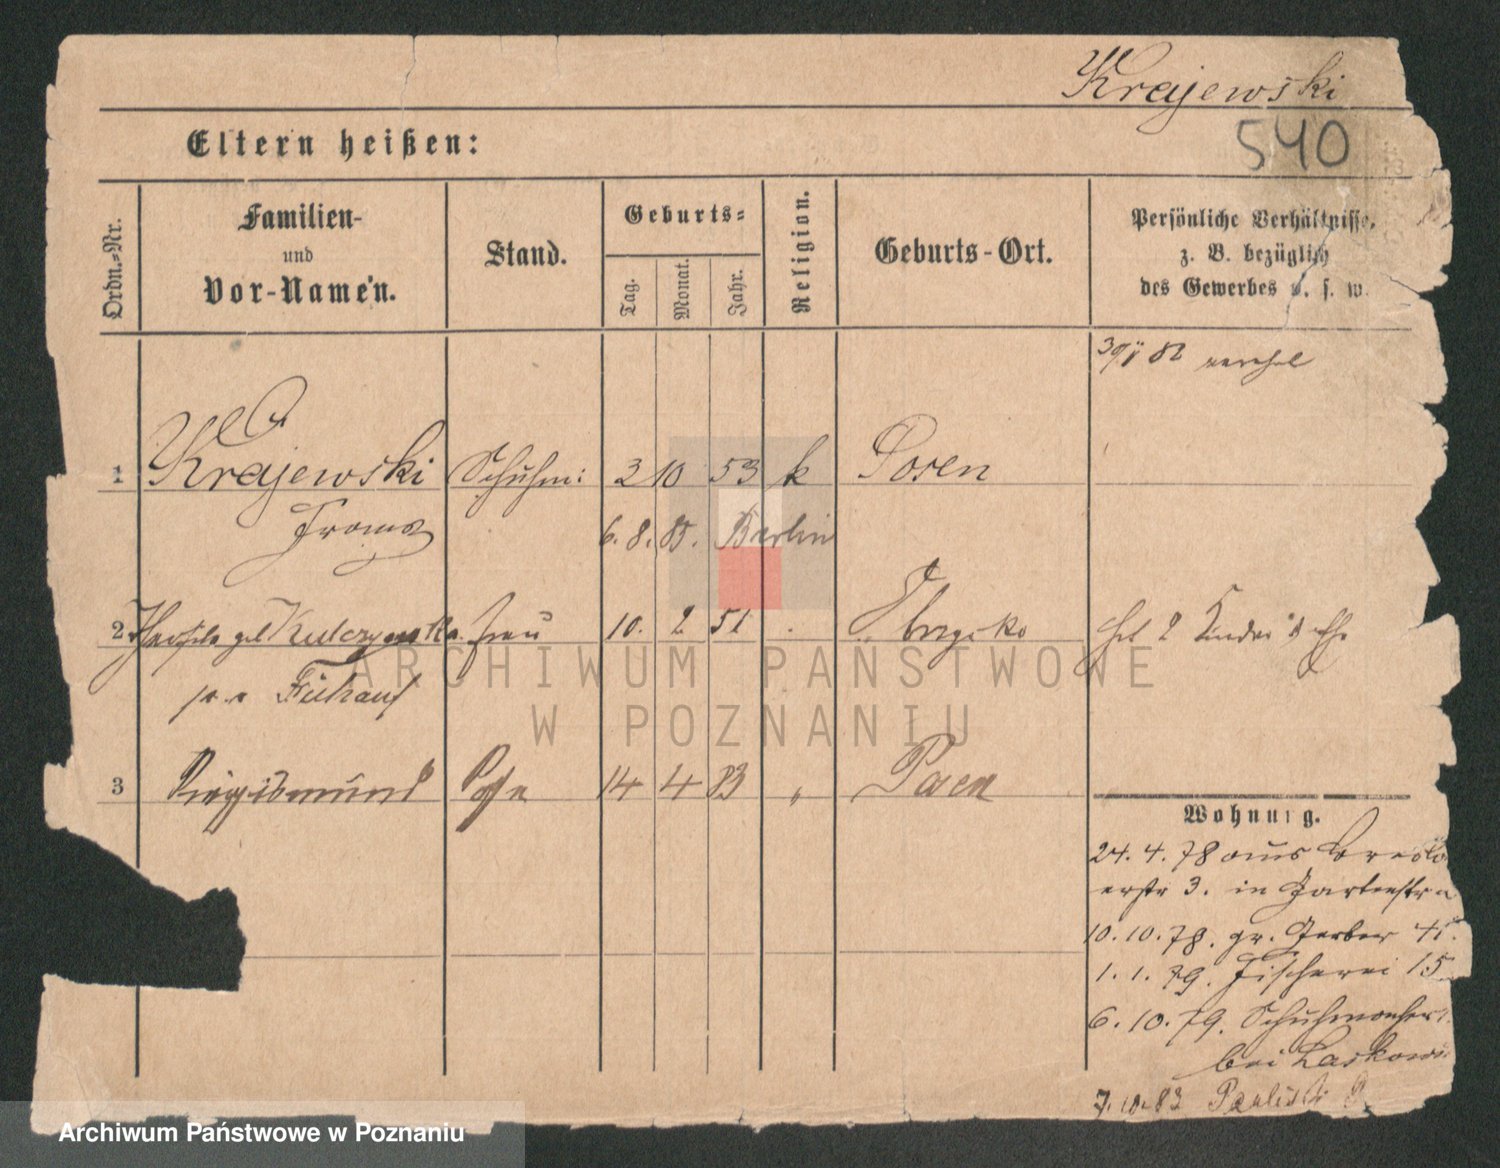 Krajewski
540
Eltern heißen:
Ordn.-Nr.
Familien-
und
Vor-Namen.
Stand.
Geburts-
Tag.
Monat.
Jahr.
Religion.
Geburts-Ort.
Persönliche Verhältnisse,
z. B. bezüglich
des Gewerbes u. s. w.
82
1 Krajewski Schuhm: 3 10 53 k Posen
Franz
6. 8. 85. Berlin
2 geb Kulczynska Frau 10. 2 51 hat 2 Kinder
3 Siegismund Sohn 14 4 83 " Posen
Wohnung.
24. 4. 78 aus
erstr 3. in Gartenstra
10. 10. 78. gr. Gerber
1. 1. 79. Fischerei 15
6. 10. 79. Schuhmacher
bei Laskow
7. 10. 83 Paulistr
ARCHIWUM PAŃSTWOWE
W POZNANIU
Archiwum Państwowe w Poznaniu